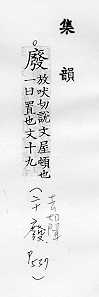 集韻
廢放吠切說文屋頓也
一曰置也文十九
(去切聲
二十廢
P537)